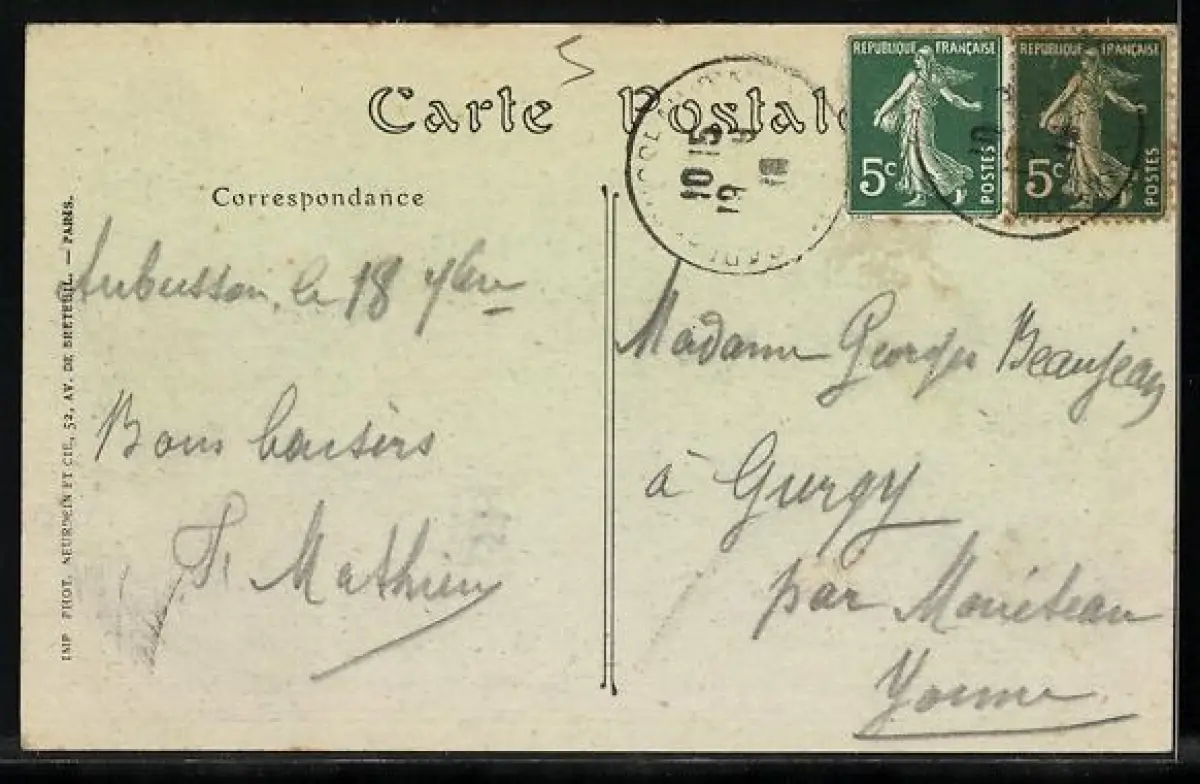 5
Carte Postale
RÉPUBLIQUE FRANÇAISE
5c POSTES
RÉPUBLIQUE FRANÇAISE
5c POSTES
10 15
19 9
Correspondance
Aubusson, le 18 7bre
Bons baisers
F. Mathieu
Madame Georges Beaujean
à Gurgy
par Monéteau
Yonne
IMP. PHOT. NEURDEIN ET CIE, 52, AV. DE BRETEUIL. — PARIS.